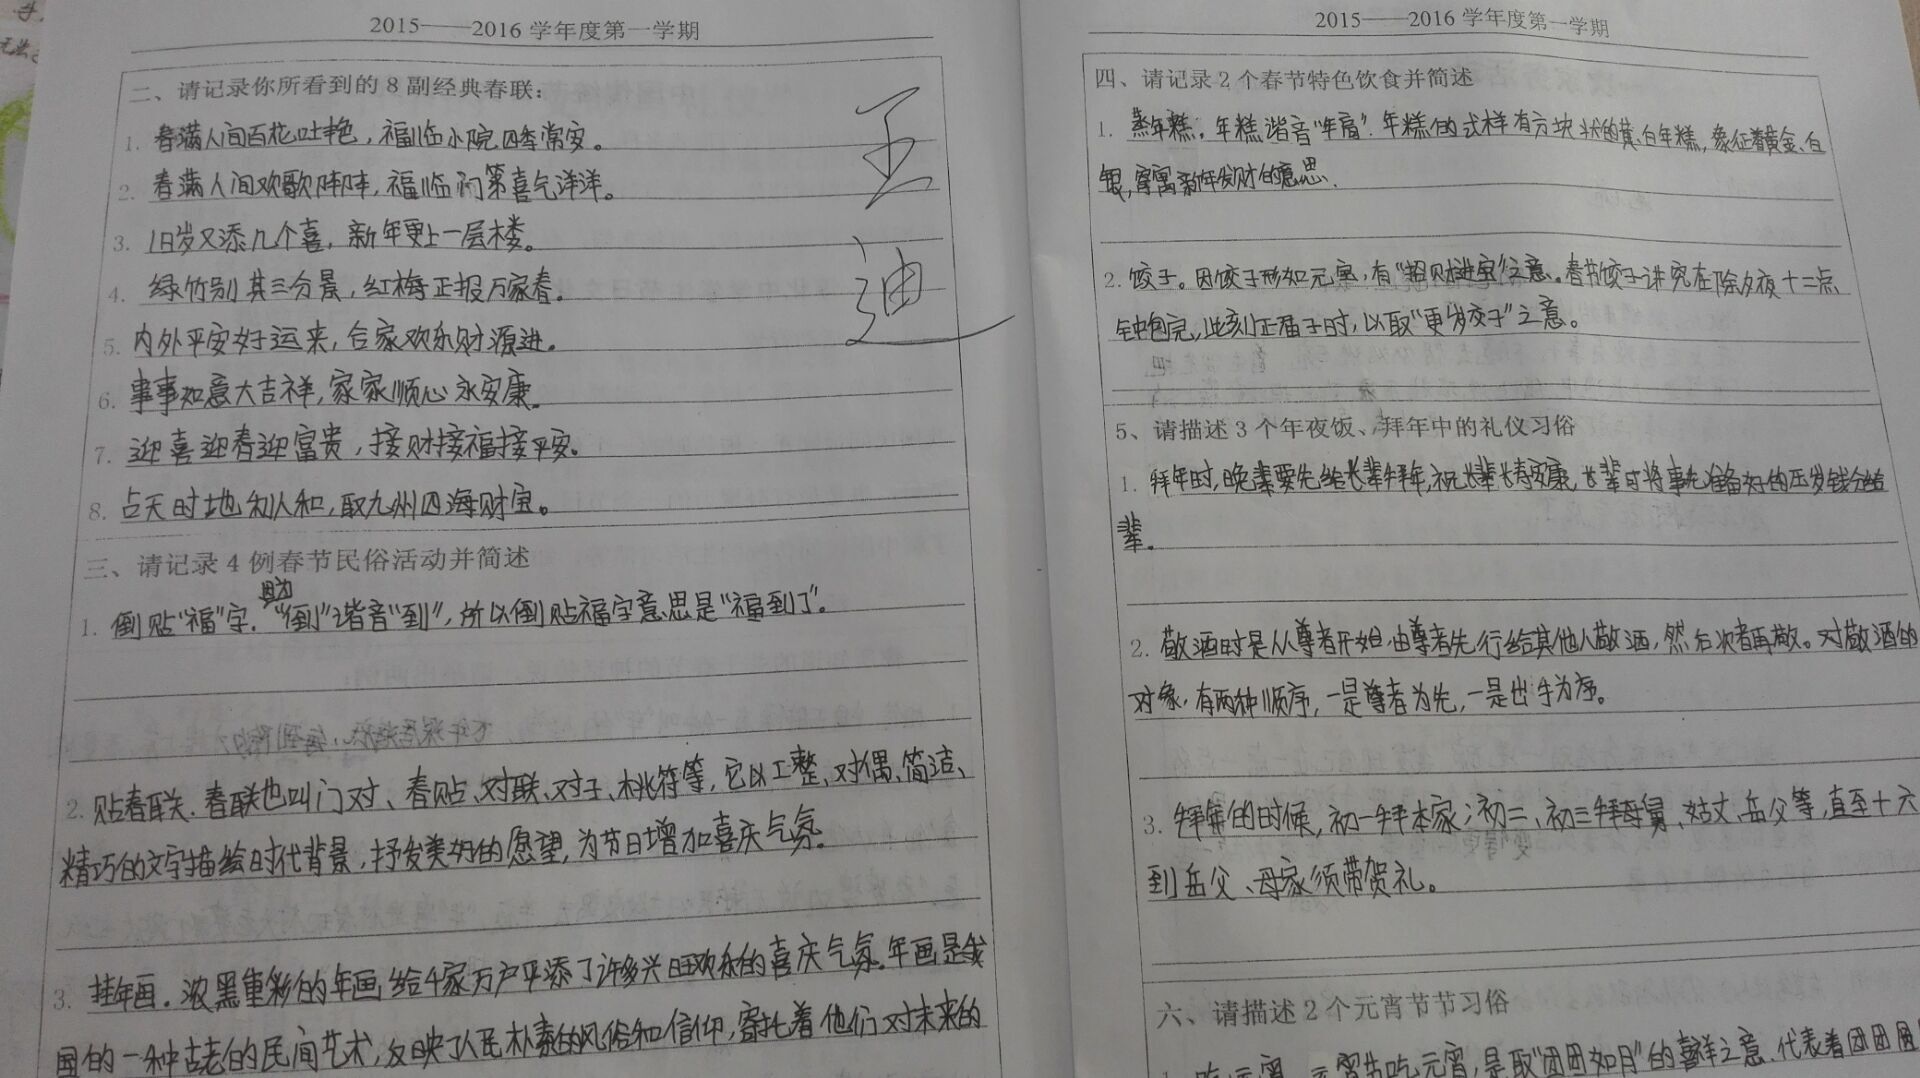 2015——2016学年度第一学期
二、请记录你所看到的8副经典春联：
1. 春满人间百花吐艳，福临小院四季常安。
2. 春满人间欢歌阵阵，福临门第喜气洋洋。
3. 旧岁又添几个喜，新年更上一层楼。
4. 绿竹别其三分景，红梅正报万家春。
5. 内外平安好运来，合家欢乐财源进。
6. 事事如意大吉祥，家家顺心永安康。
7. 迎喜迎春迎富贵，接财接福接平安。
8. 占天时地利人和，取九州四海财宝。
王
迪
三、请记录4例春节民俗活动并简述
1. 倒贴“福”字. 因为“倒”谐音“到”，所以倒贴福字意思是“福到了”。
2. 贴春联. 春联也叫门对、春贴、对联、对子、桃符等，它以工整、对偶、简洁、
精巧的文字描绘时代背景，抒发美好的愿望，为节日增加喜庆气氛。
3. 挂年画. 浓黑重彩的年画给千家万户平添了许多兴旺欢乐的喜庆气氛. 年画是我
国的一种古老的民间艺术，反映了人民朴素的风俗和信仰，寄托着他们对未来的
2015——2016学年度第一学期
四、请记录2个春节特色饮食并简述
1. 蒸年糕. 年糕谐音“年高”. 年糕的式样有方块状的黄、白年糕，象征着黄金、白
银，寄寓新年发财的意思.
2. 饺子。因饺子形如元宝，有“招财进宝”之意。春节饺子讲究在除夕夜十二点
钟包完，此刻正届子时，以取“更岁交子”之意。
5、请描述3个年夜饭、拜年中的礼仪习俗
1. 拜年时，晚辈要先给长辈拜年，祝长辈长寿安康，长辈可将事先准备好的压岁钱分给
辈。
2. 敬酒时是从尊者开始，由尊者先行给其他人敬酒，然后次者再敬。对敬酒的
对象，有两种顺序，一是尊者为先，一是出手为序。
3. 拜年的时候，初一拜本家；初二、初三拜母舅、姑丈、岳父等，直至十六
到岳父、母家须带贺礼。
六、请描述2个元宵节节习俗
1. 吃元宵. 元宵节吃元宵，是取“团团如月”的吉祥之意. 代表着团团圆